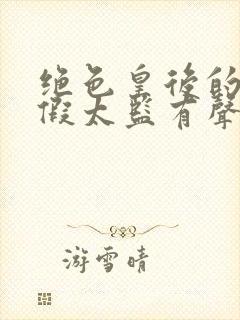 绝色皇後的
假太監有聲
游雪晴